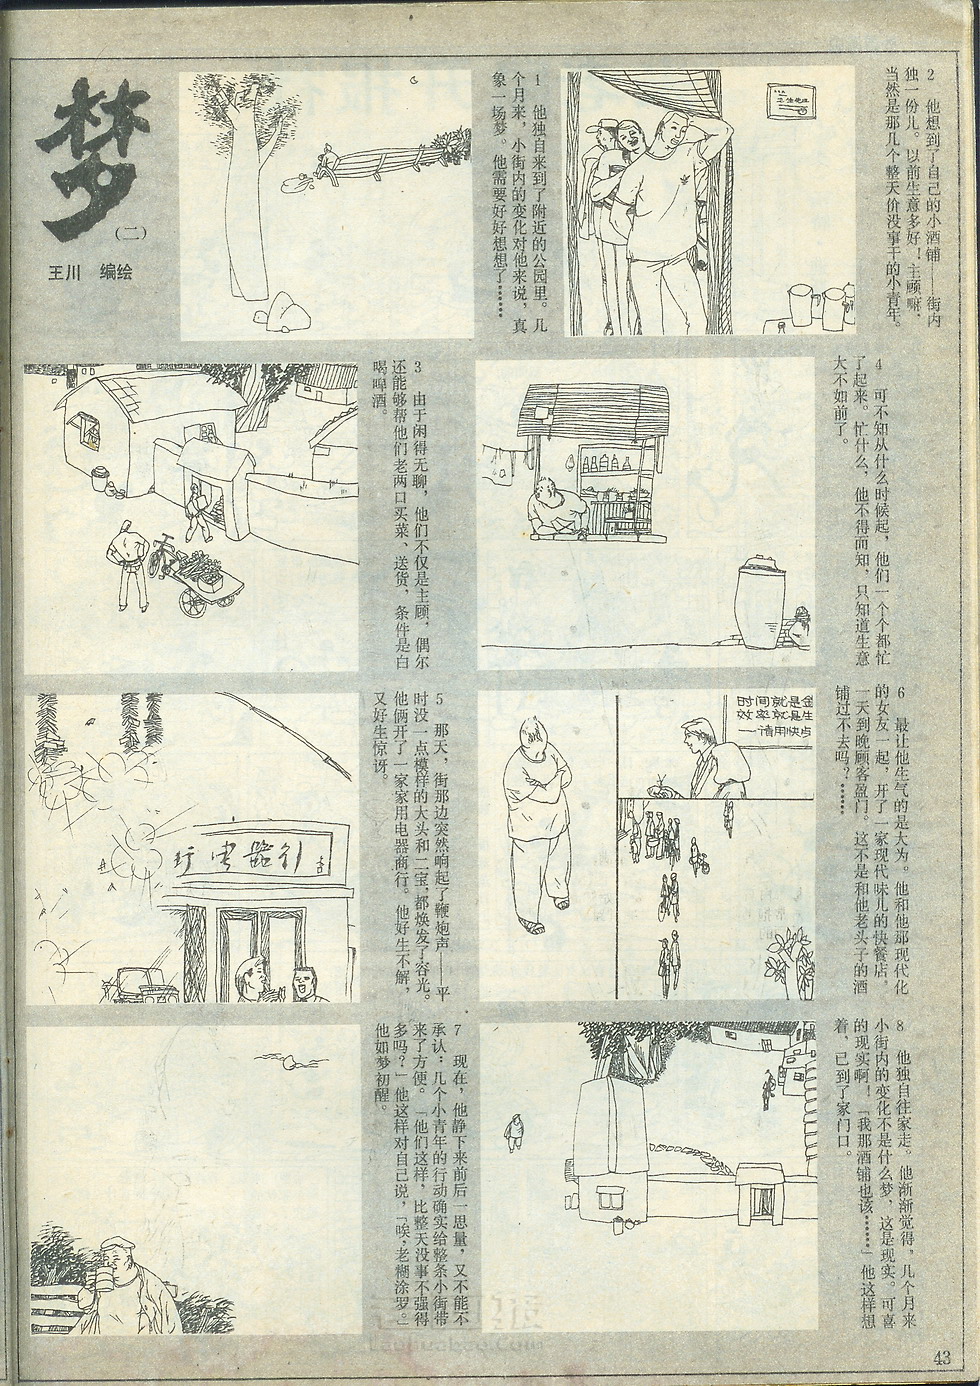 梦
(二)
王川 编绘
1 他独自来到了附近的公园里。几
个月来，小街内的变化对他来说，真
象一场梦。他需要好好想想了……
2 他想到了自己的小酒铺——街内
独一份儿。以前生意多好！主顾嘛，
当然是那几个整天价没事干的小青年。
3 由于闲得无聊，他们不仅是主顾，偶尔
还能够帮他们老两口买菜、送货，条件是白
喝啤酒。
4 可不知从什么时候起，他们一个个都忙
了起来。忙什么，他不得而知，只知道生意
大不如前了。
5 那天，街那边突然响起了鞭炮声——平
时没一点模样的大头和二宝，都焕发了容光。
他俩开了一家家用电器商行。他好生不解，
又好生惊讶。
行电器行
6 最让他生气的是大为。他和他那现代化
的女友一起，开了一家现代味儿的快餐店，
一天到晚顾客盈门。这不是和他老头子的酒
铺过不去吗？……
时间就是金
效率就是生
一请用快点
7 现在，他静下来前后一思量，又不能不
承认：几个小青年的行动确实给整条小街带
来了方便。「他们这样，比整天没事不强得
多吗？」他这样对自己说，「唉，老糊涂罗。」
他如梦初醒。
8 他独自往家走。他渐渐觉得，几个月来
小街内的变化不是什么梦，这是现实。可喜
的现实啊！「我那酒铺也该……」他这样想
着，已到了家门口。
43